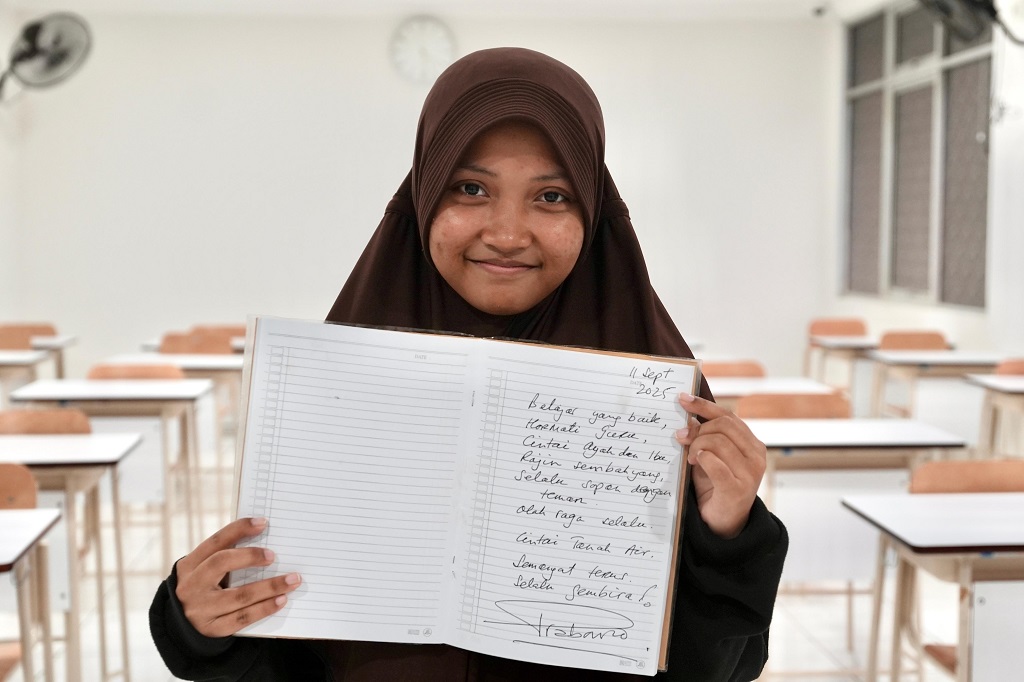 DATE
11 Sept
2025
Belajar yang baik,
Hormati Guru,
Cintai Ayah dan Ibu,
Rajin sembahyang,
Selalu sopan dengan
teman
Olah raga selalu.
Cintai Tanah Air.
Semangat terus.
Selalu gembira!
Prabowo